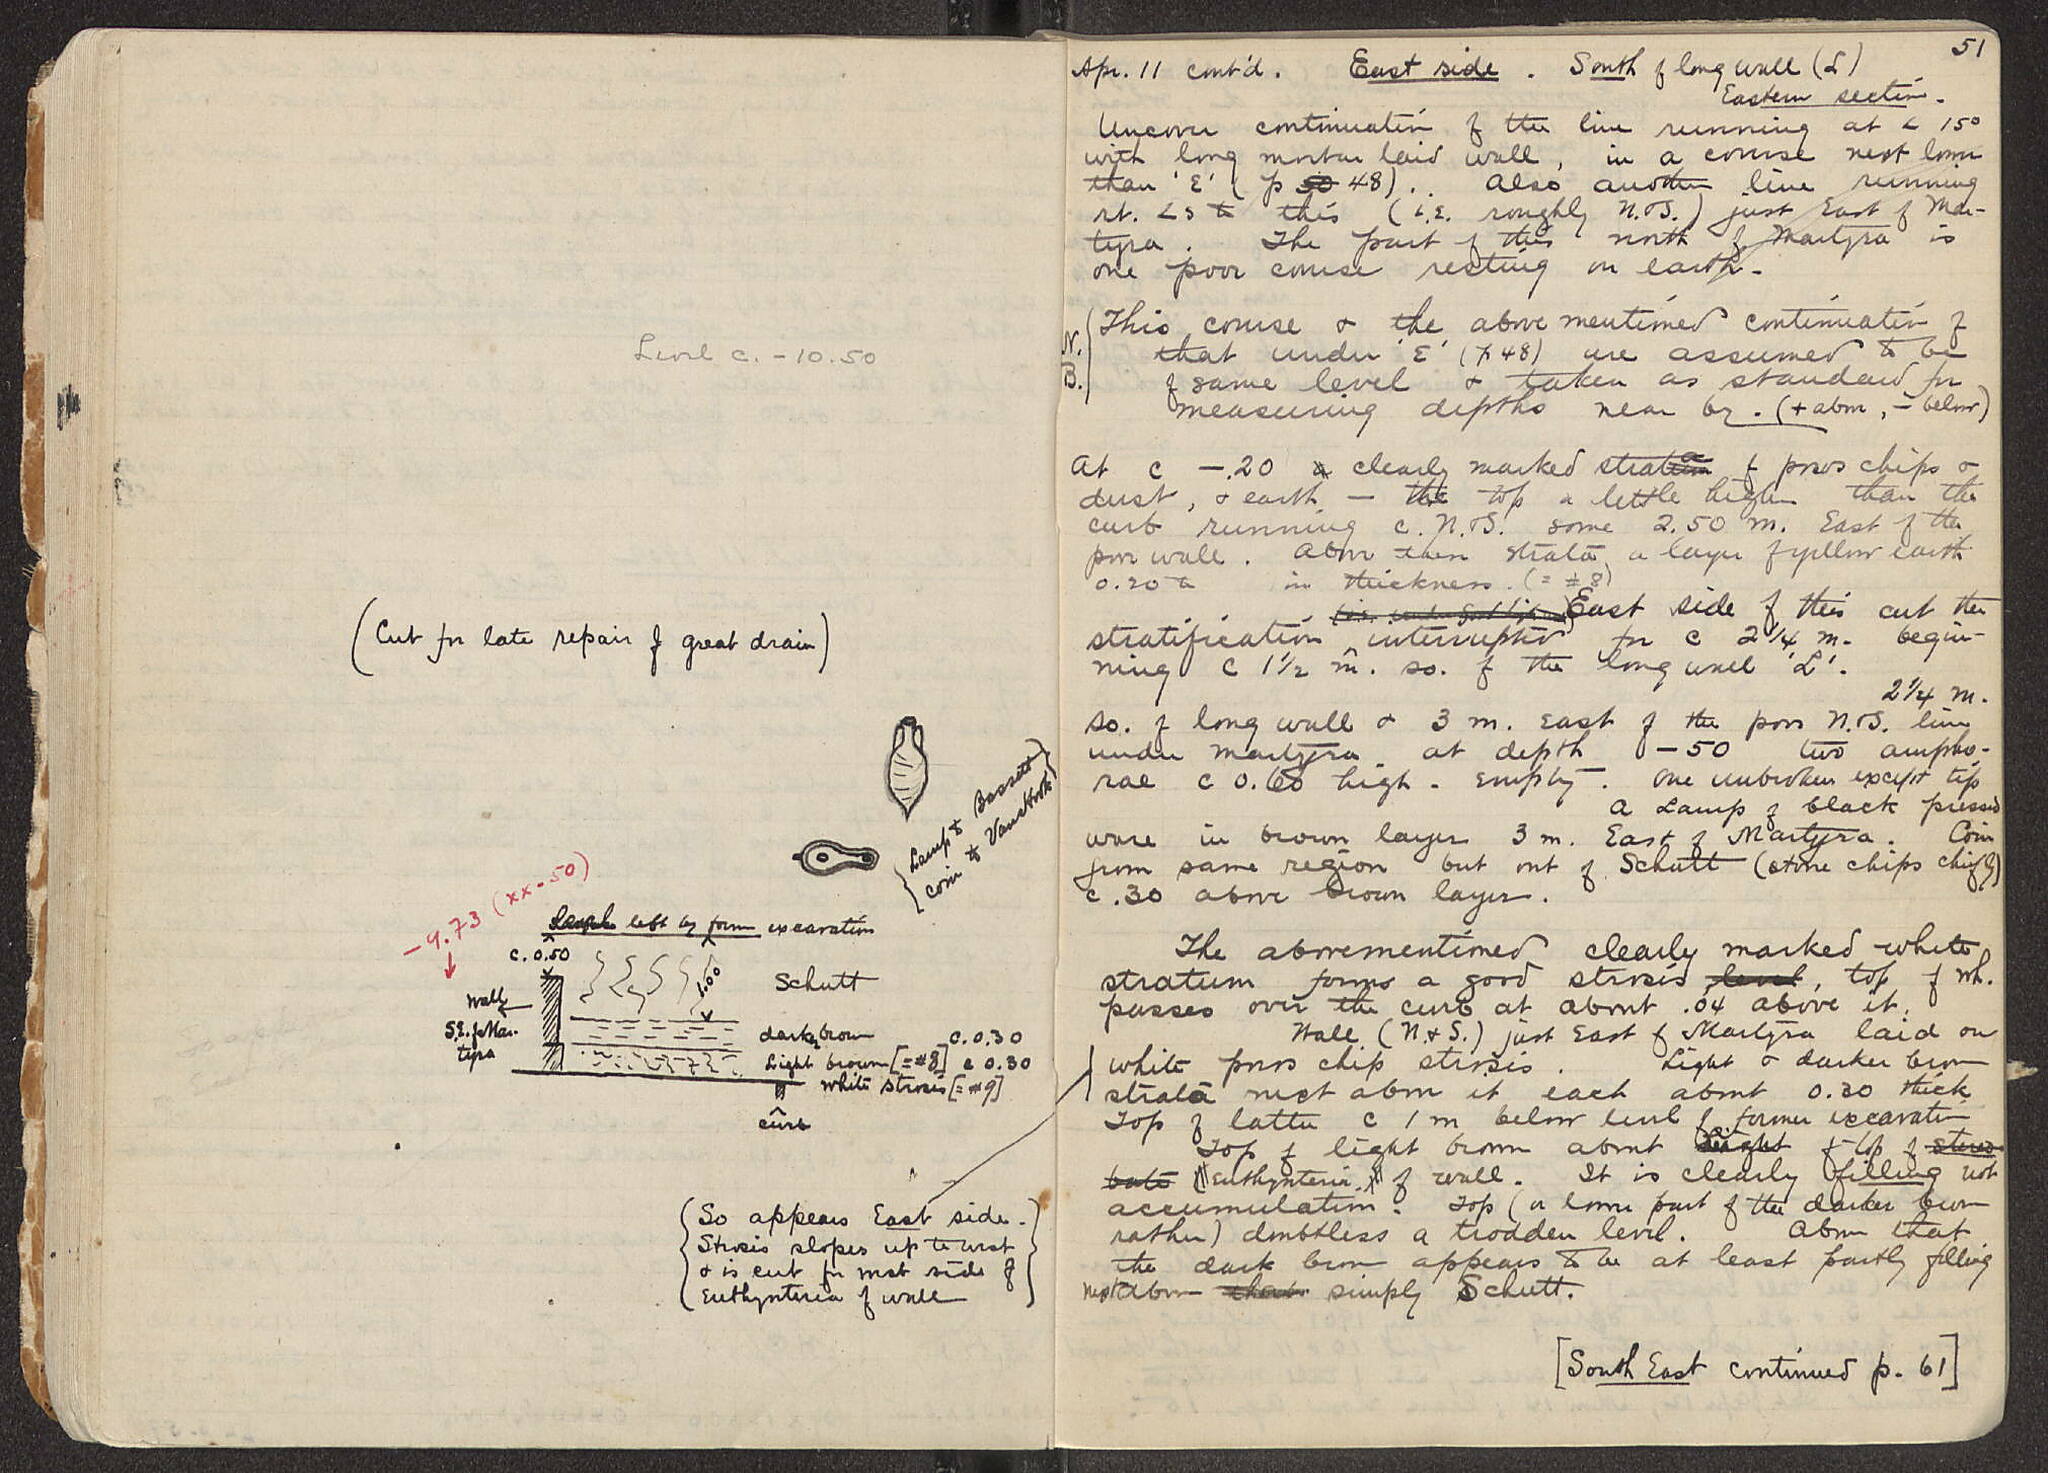 Level c. -10.50
(Cut for late repair of great drain)
{Lamp to Bassett
coin to Vanderbrook}
-9.73 (xx-50)
Level left by form excavation
c. 0.50
1.00
Schutt
Wall
S.E. of Mar-
tyra
darker brown c. 0.30
Light brown [=#8] c 0.30
white strosis [=#9]
curb
{So appears East side.
Strosis slopes up to west
& is cut for west side of
Euthynteria of wall}
51
Apr. 11 cont'd. East side. South of long wall (L)
Eastern section.
Uncover continuation of the line running at ∠ 15°
with long mortar laid wall, in a course next lower
than 'E' (p 50 48). Also another line running
rt. ∠s to this (i.e. roughly N.&S.) just East of Mar-
tyra. The part of this north of Martyra is
one poor course resting on earth.
N.B.
This course & the above mentioned continuation of
that under 'E' (p 48) are assumed to be
of same level & taken as standard for
measuring depths near by. (+ above, - below)
At c -.20 clearly marked strata of poros chips &
dust, & earth - the top a little higher than the
curb running c. N.&S. some 2.50 m. East of the
poor wall. Above these strata a layer of yellow earth
0.20 in thickness. (= #8)
East side of this cut the
stratification interrupted for c 2 1/4 m. begin-
ning c 1 1/2 m. so. of the long wall 'L'.
2 1/4 m.
So. of long wall & 3 m. East of the poros N.&S. line
under Martyra at depth -50 two ampho-
rae c 0.60 high. Empty. One unbroken except tip
A Lamp of black pressed
ware in brown layer 3 m. East of Martyra. Coin
from same region but out of Schutt (stone chips chiefly)
c .30 above brown layer.
The abovementioned clearly marked white
stratum forms a good strosis level, top of wh.
passes over the curb at about .04 above it.
Wall (N.&S.) just East of Martyra laid on
white poros chip strosis. Light & darker brown
strata next above it each about 0.30 thick
Top of latter c 1 m below level of former excavation
Top of light brown about height of top of stereo-
bate "Euthynteria" of wall. It is clearly filling not
accumulation. Top (or lower part of the darker brown
rather) doubtless a trodden level. Above that
the dark brown appears to be at least partly filling
next above that simply Schutt.
[South East continued p. 61]